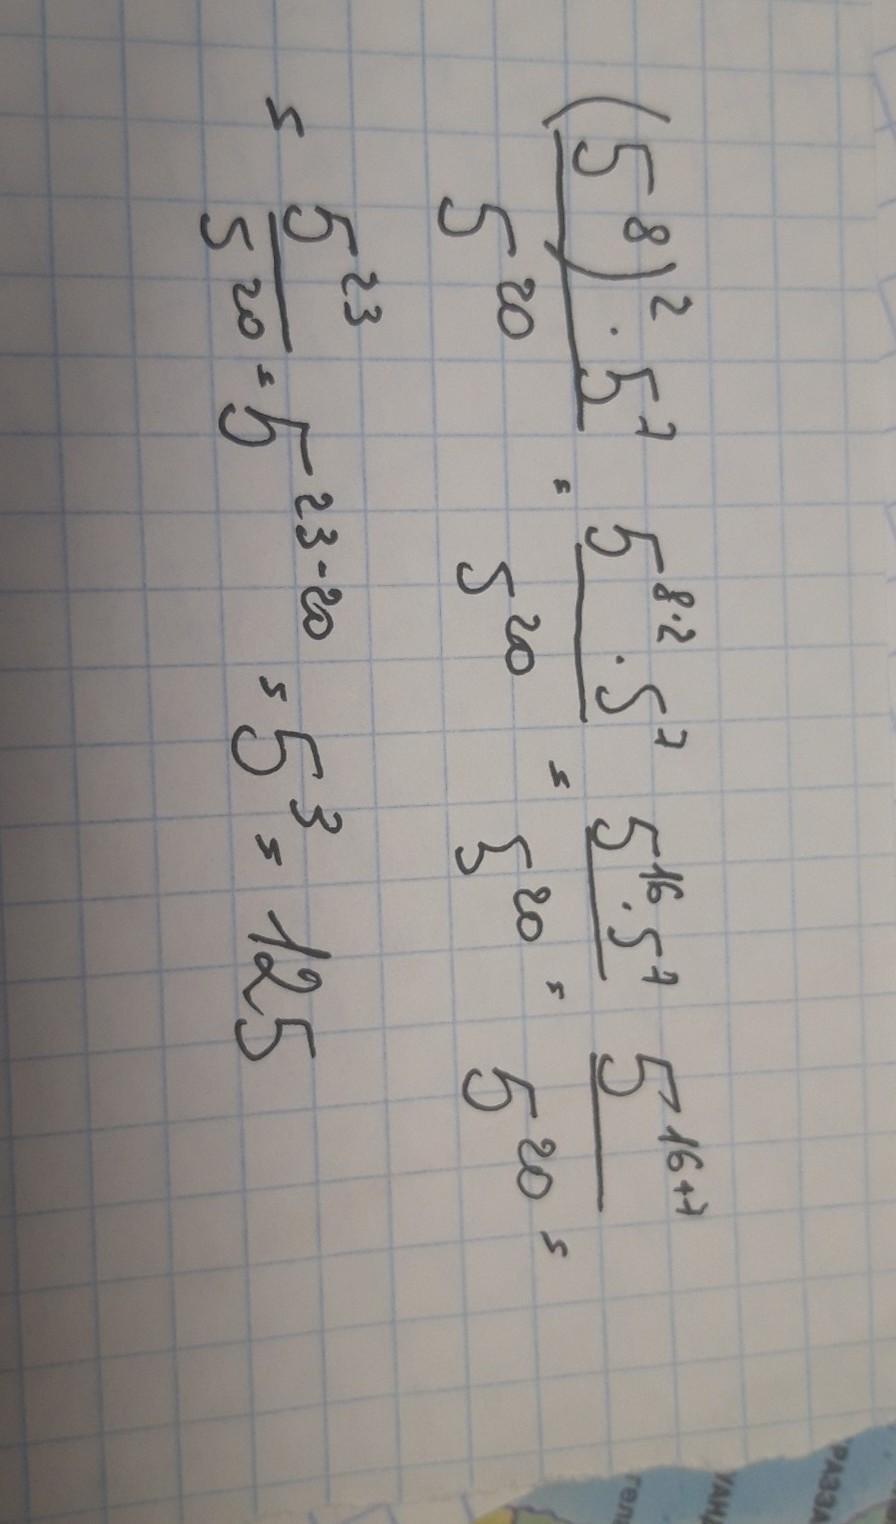 (5^8)^2 · 5^7 / 5^20 = 5^8·2 · 5^7 / 5^20 = 5^16 · 5^7 / 5^20 = 5^16+7 / 5^20 =
= 5^23 / 5^20 = 5^23-20 = 5^3 = 125